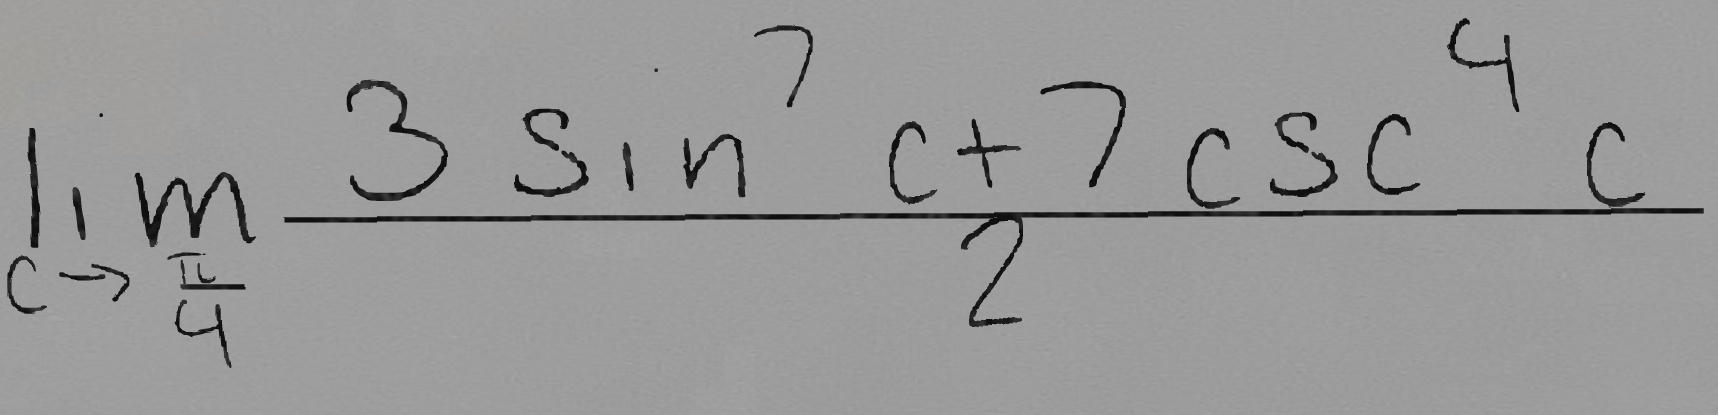 lim c→π/4 (3 sin^7 c + 7 csc^4 c)/2